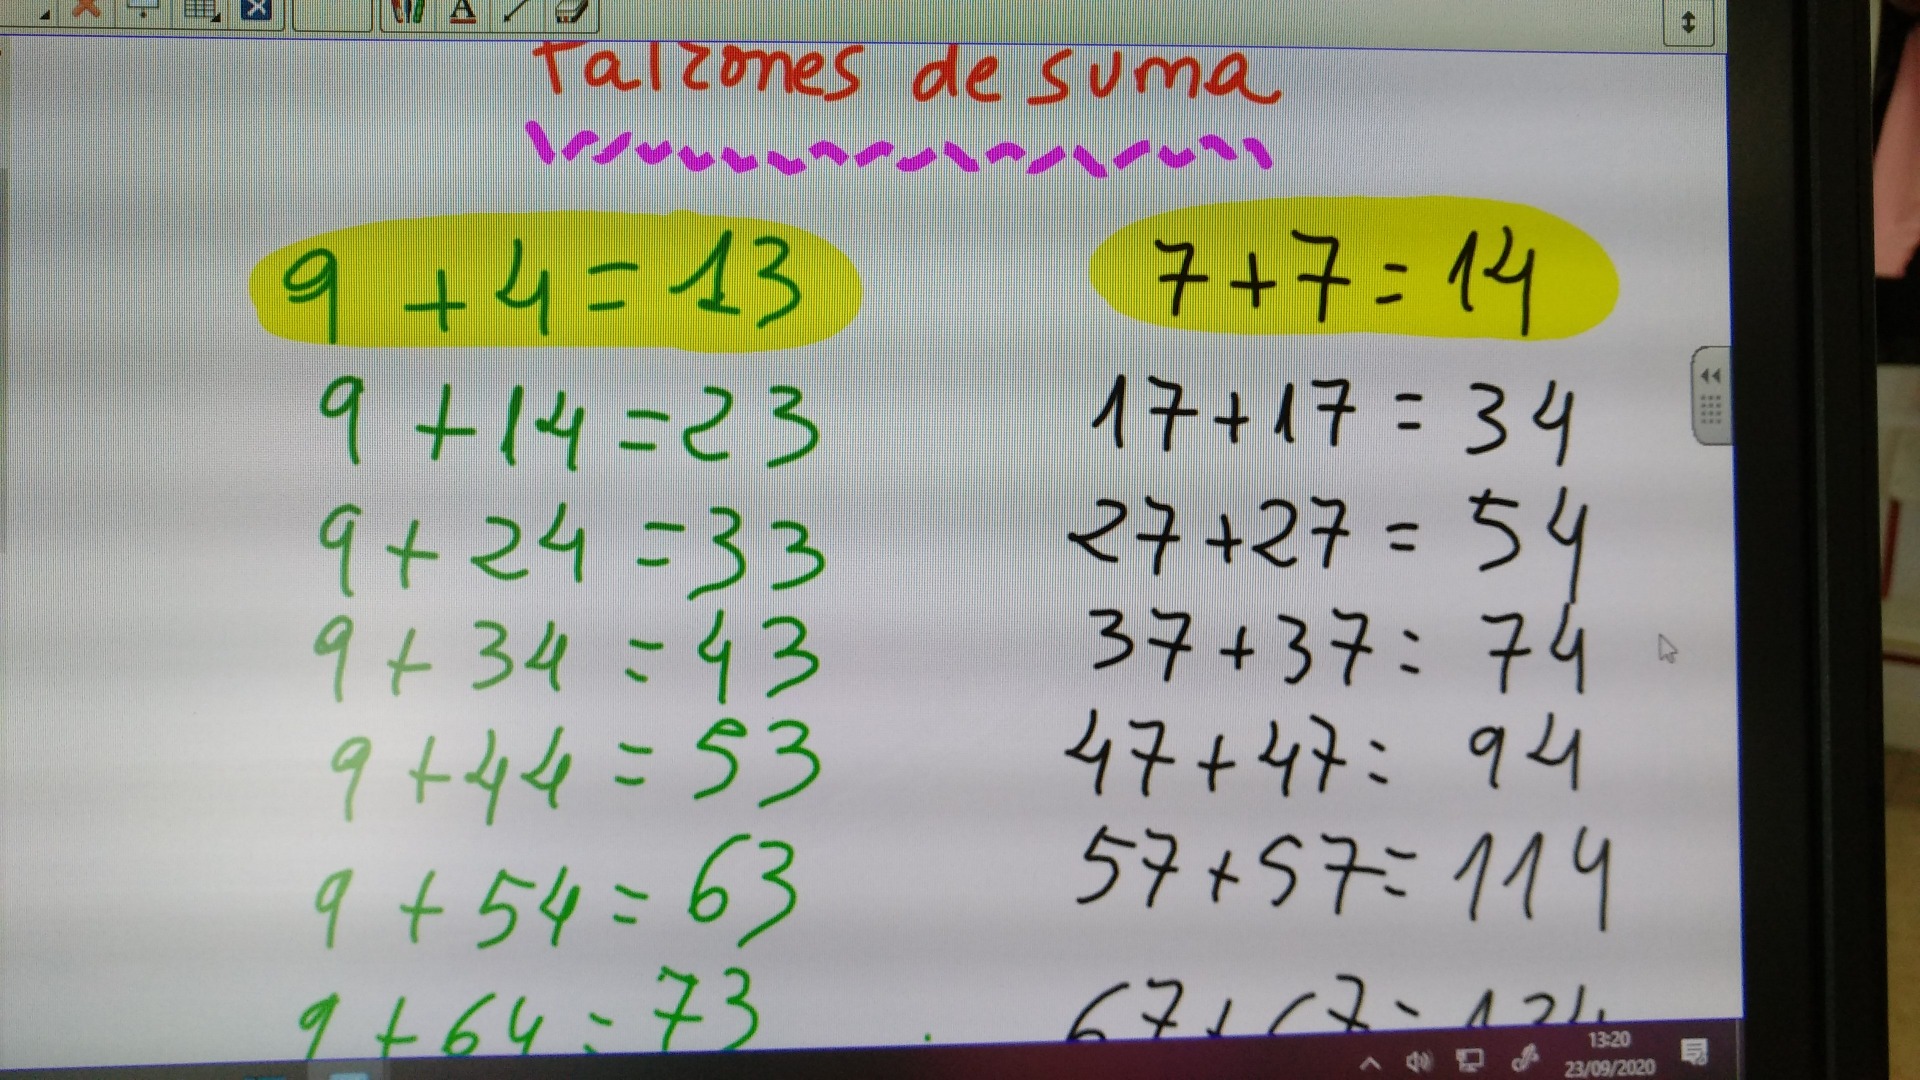 Patrones de suma
9 + 4 = 13
9 + 14 = 23
9 + 24 = 33
9 + 34 = 43
9 + 44 = 53
9 + 54 = 63
9 + 64 = 73
7 + 7 = 14
17 + 17 = 34
27 + 27 = 54
37 + 37 = 74
47 + 47 = 94
57 + 57 = 114
67 + 67 = 134
13:20
23/09/2020